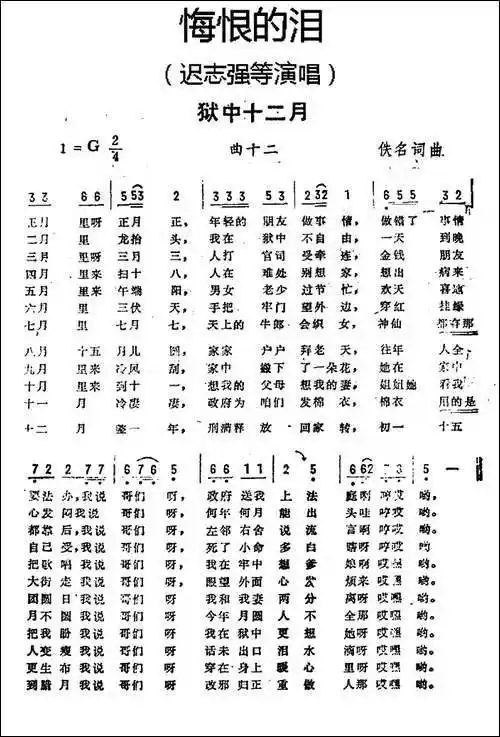 悔恨的泪
（迟志强等演唱）
狱中十二月
1=G 2/4 曲十二 佚名词曲
3 3 6 6 | 5 53 2 | 3 3 3 5 3 | 2 32 1 | 6 5 5 3 2 |
正月 里呀 正月 正, 年轻的 朋友 做事 情, 做错了 事情
二月 里 龙抬 头, 我在 狱中 不自 由, 一天 到晚
三月 里呀 三月 三, 人打 官司 受牵 连, 金钱 朋友
四月 里来 扫十 八, 人在 难处 别想 家, 想出 病来
五月 里来 午端 阳, 男女 老少 过节 忙, 欢天 喜地
六月 里 三伏 天, 手把 牢门 望外 边, 穿红 挂绿
七月 里 七月 七, 天上的 牛郎 会织 女, 神仙 都有那
八月 十五 月儿 圆, 家家 户户 拜老 天, 往年 人全
九月 里来 冷风 刮, 家中 搬下 了一朵 花, 她在 家中
十月 里来 到十 一, 想我的 父母 想我的 妻, 姐姐她 看我
十一 月 冷凄 凄, 政府为 咱们 发棉 衣, 棉衣 用的是
十二 月 整一 年, 刑满释 放 回家 转, 初一 十五
7 2 2 7 7 | 6 7 6 5 | 6 6 1 1 2 5 | 6 62 7 3 | 5 — ‖
要法 办,我说 哥们 呀, 政府 送我 上法 庭啊 哼哎 哟。
心发 闷我说 哥们 呀, 何年 何月 能出 头哇 哼哎 哟。
都靠 后,我说 哥们 呀, 左邻 右舍 说流 言啊 哼哎 哟。
自己 受,我说 哥们 呀, 死了 小命 多白 瞎呀 哼哎 哟。
把歌 唱我说 哥们 呀, 我在 牢中 想爹 娘啊 哎嘿 哟。
大街 走我说 哥们 呀, 眼望 外面 心发 烦来 哎嘿 哟。
团圆 日我说 哥们 呀 我和 我妻 两分 离呀 哎嘿 哟。
月不 圆我说 哥们 呀 今年 月圆 人不 全那 哎嘿 哟。
把我 盼我说 哥们 呀 我在 狱中 更想 她呀 哎嘿 哟。
人变 瘦我说 哥们 呀 话未 出口 泪水 滴呀 哎嘿 哟。
更生 布我说 哥们 呀 穿在 身上 暖心 里呀 哎嘿 哟。
到腊 月我说 哥们 呀 改邪 归正 重做 人那 哎嘿 哟。